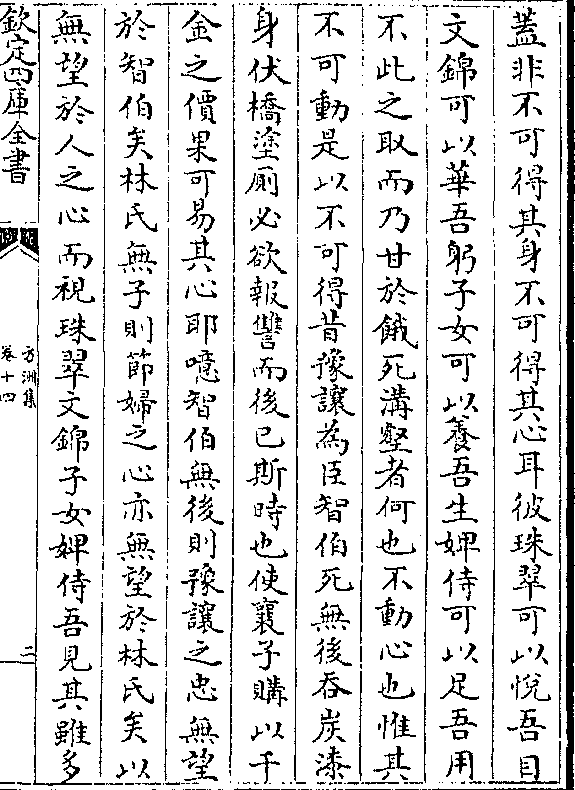 蓋非不可得其身不可得其心耳彼珠翠可以悅吾目
文錦可以華吾躬子女可以養吾生婢侍可以足吾用
不此之取而乃甘於餓死溝壑者何也不動心也惟其
不可動是以不可得昔豫讓為臣智伯死無後吞炭漆
身伏橋塗廁必欲報讐而後已斯時也使襄子購以千
金之價果可易其心耶噫智伯無後則豫讓之忠無望
於智伯矣林氏無子則節婦之心亦無望於林氏矣以
無望於人之心而視珠翠文錦子女婢侍吾見其雖多
欽定四庫全書
方洲集
卷十四
二